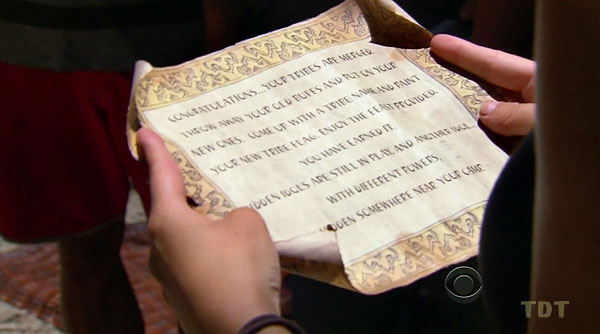 CONGRATULATIONS...YOUR TRIBES ARE MERGED.
THROW AWAY YOUR OLD BUFFS AND PUT ON YOUR
NEW ONES. COME UP WITH A TRIBE NAME AND PAINT
YOUR NEW TRIBE FLAG. ENJOY THE FEAST PROVIDED.
YOU HAVE EARNED IT.
HIDDEN IDOLS ARE STILL IN PLAY, AND ANOTHER IDOL...
WITH DIFFERENT POWERS,
HIDDEN SOMEWHERE NEAR YOUR CAMP
TDT